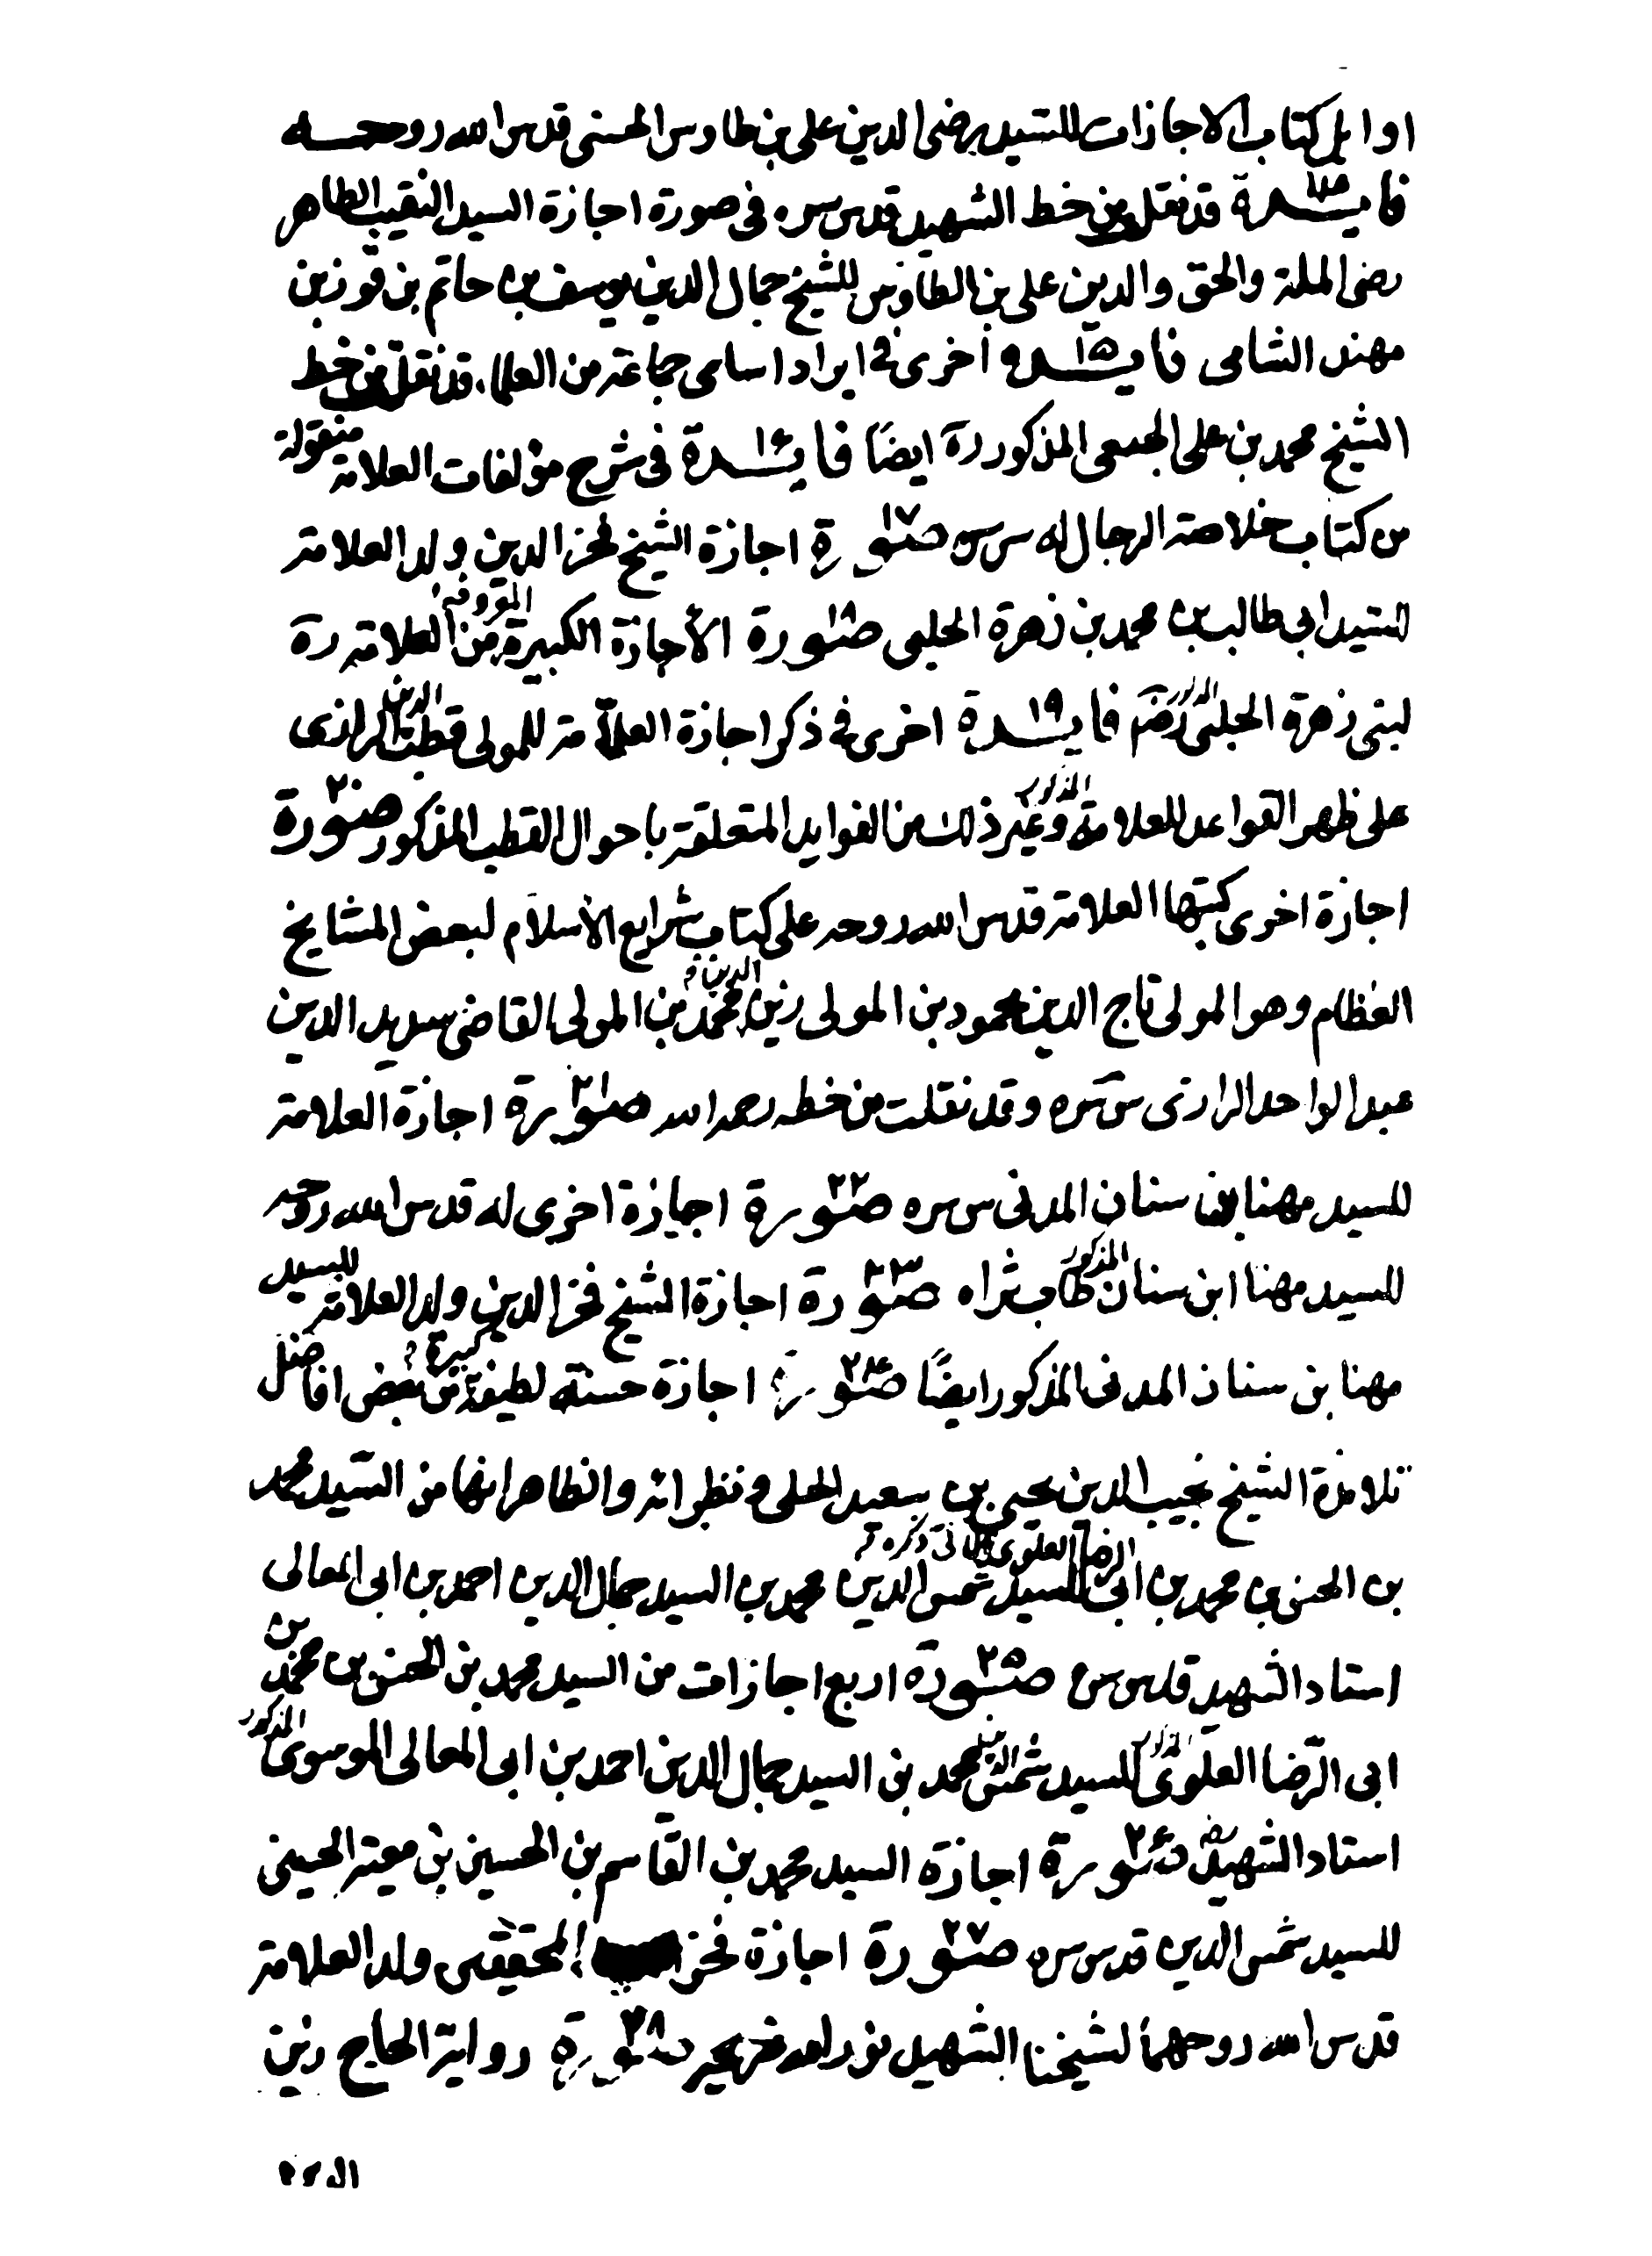 اوايل كتاب الاجازات للسيد رضى الدين على بن طاوس الحسنى قدس الله روحه
فايدة ١٤ قد نقل من خط الشهيد قدس سره فى صورة اجازة السيد النقيب الطاهر
رضى الملة والحق والدين على بن الطاوس للشيخ جمال الدين يوسف بن حاتم بن فوز بن
مهند الشامى فايدة ١٥ اخرى فى ايراد اسامى جماعة من العلماء قد نقل من خط
الشيخ محمد بن على الجبعى المذكور ره ايضًا فايدة ١٦ فى شرح مؤلفات العلامة منقولة
من كتاب خلاصة الرجال له س سره صورة ١٧ اجازة الشيخ فخر الدين ولد العلامة
للسيد ابى طالب بن محمد بن زهرة الحلبى صورة ١٨ الأجازة الكبيرة المعروفة من العلامة ره
لبنى زهرة الحلبى المذكور رضه فايدة ١٩ اخرى فى ذكر اجازة العلّامة للمولى قطب الدين الرازى
على ظهر القواعد للعلامة المذكور وغير ذلك من الفوايد المتعلقة باحوال القطب المذكور صورة ٢٠
اجازة اخرى كتبها العلامة قدس الله روحه على كتاب شرايع الأسلام لبعض المشايخ
العظام وهو المولى تاج الدين محمود بن المولى زين الدين محمد بن المولى القاضى سديد الدين
عبد الواحد الرازى س سره وقد نقلت من خطه رحمه الله صورة ٢١ اجازة العلامة
للسيد مهنا بن سنان المدنى س سره صورة ٢٢ اجازة اخرى له قدس الله روحه
للسيد مهنا ابن سنان المذكور طاب ثراه صورة ٢٣ اجازة الشيخ فخر الدين ولد العلامة للسيد
مهنا بن سنان المدنى المذكور ايضًا صورة ٢٤ اجازة حسنة لطيفة كبيرة من بعض افاضل
تلامذة الشيخ نجيب الدين يحيى بن سعيد الحلى ونظرائه والظاهر انها من السيد محمد
بن الحسن بن محمد بن ابى الرضا العلوى الاتى ذكره للسيد شمس الدين محمد بن السيد جمال الدين احمد بن ابى المعالى
استاد الشهيد قدس س صورة ٢٥ اربع اجازات من السيد محمد بن الحسن بن محمد بن
ابى الرّضا العلوى المذكور للسيد شمس الدين محمد بن السيد جمال الدين احمد بن ابى المعالى الموسوى المذكور
استاد الشهيد رضه صورة ٢٦ اجازة السيد محمد بن القاسم بن الحسين بن معية الحسينى
للسيد شمس الدين قدس سره صورة ٢٧ اجازة فخر المحققين ولد العلامة
قدس الله روحهما لشيخنا الشهيد نور الله ضريحه صورة ٢٨ رواية الحاج زين